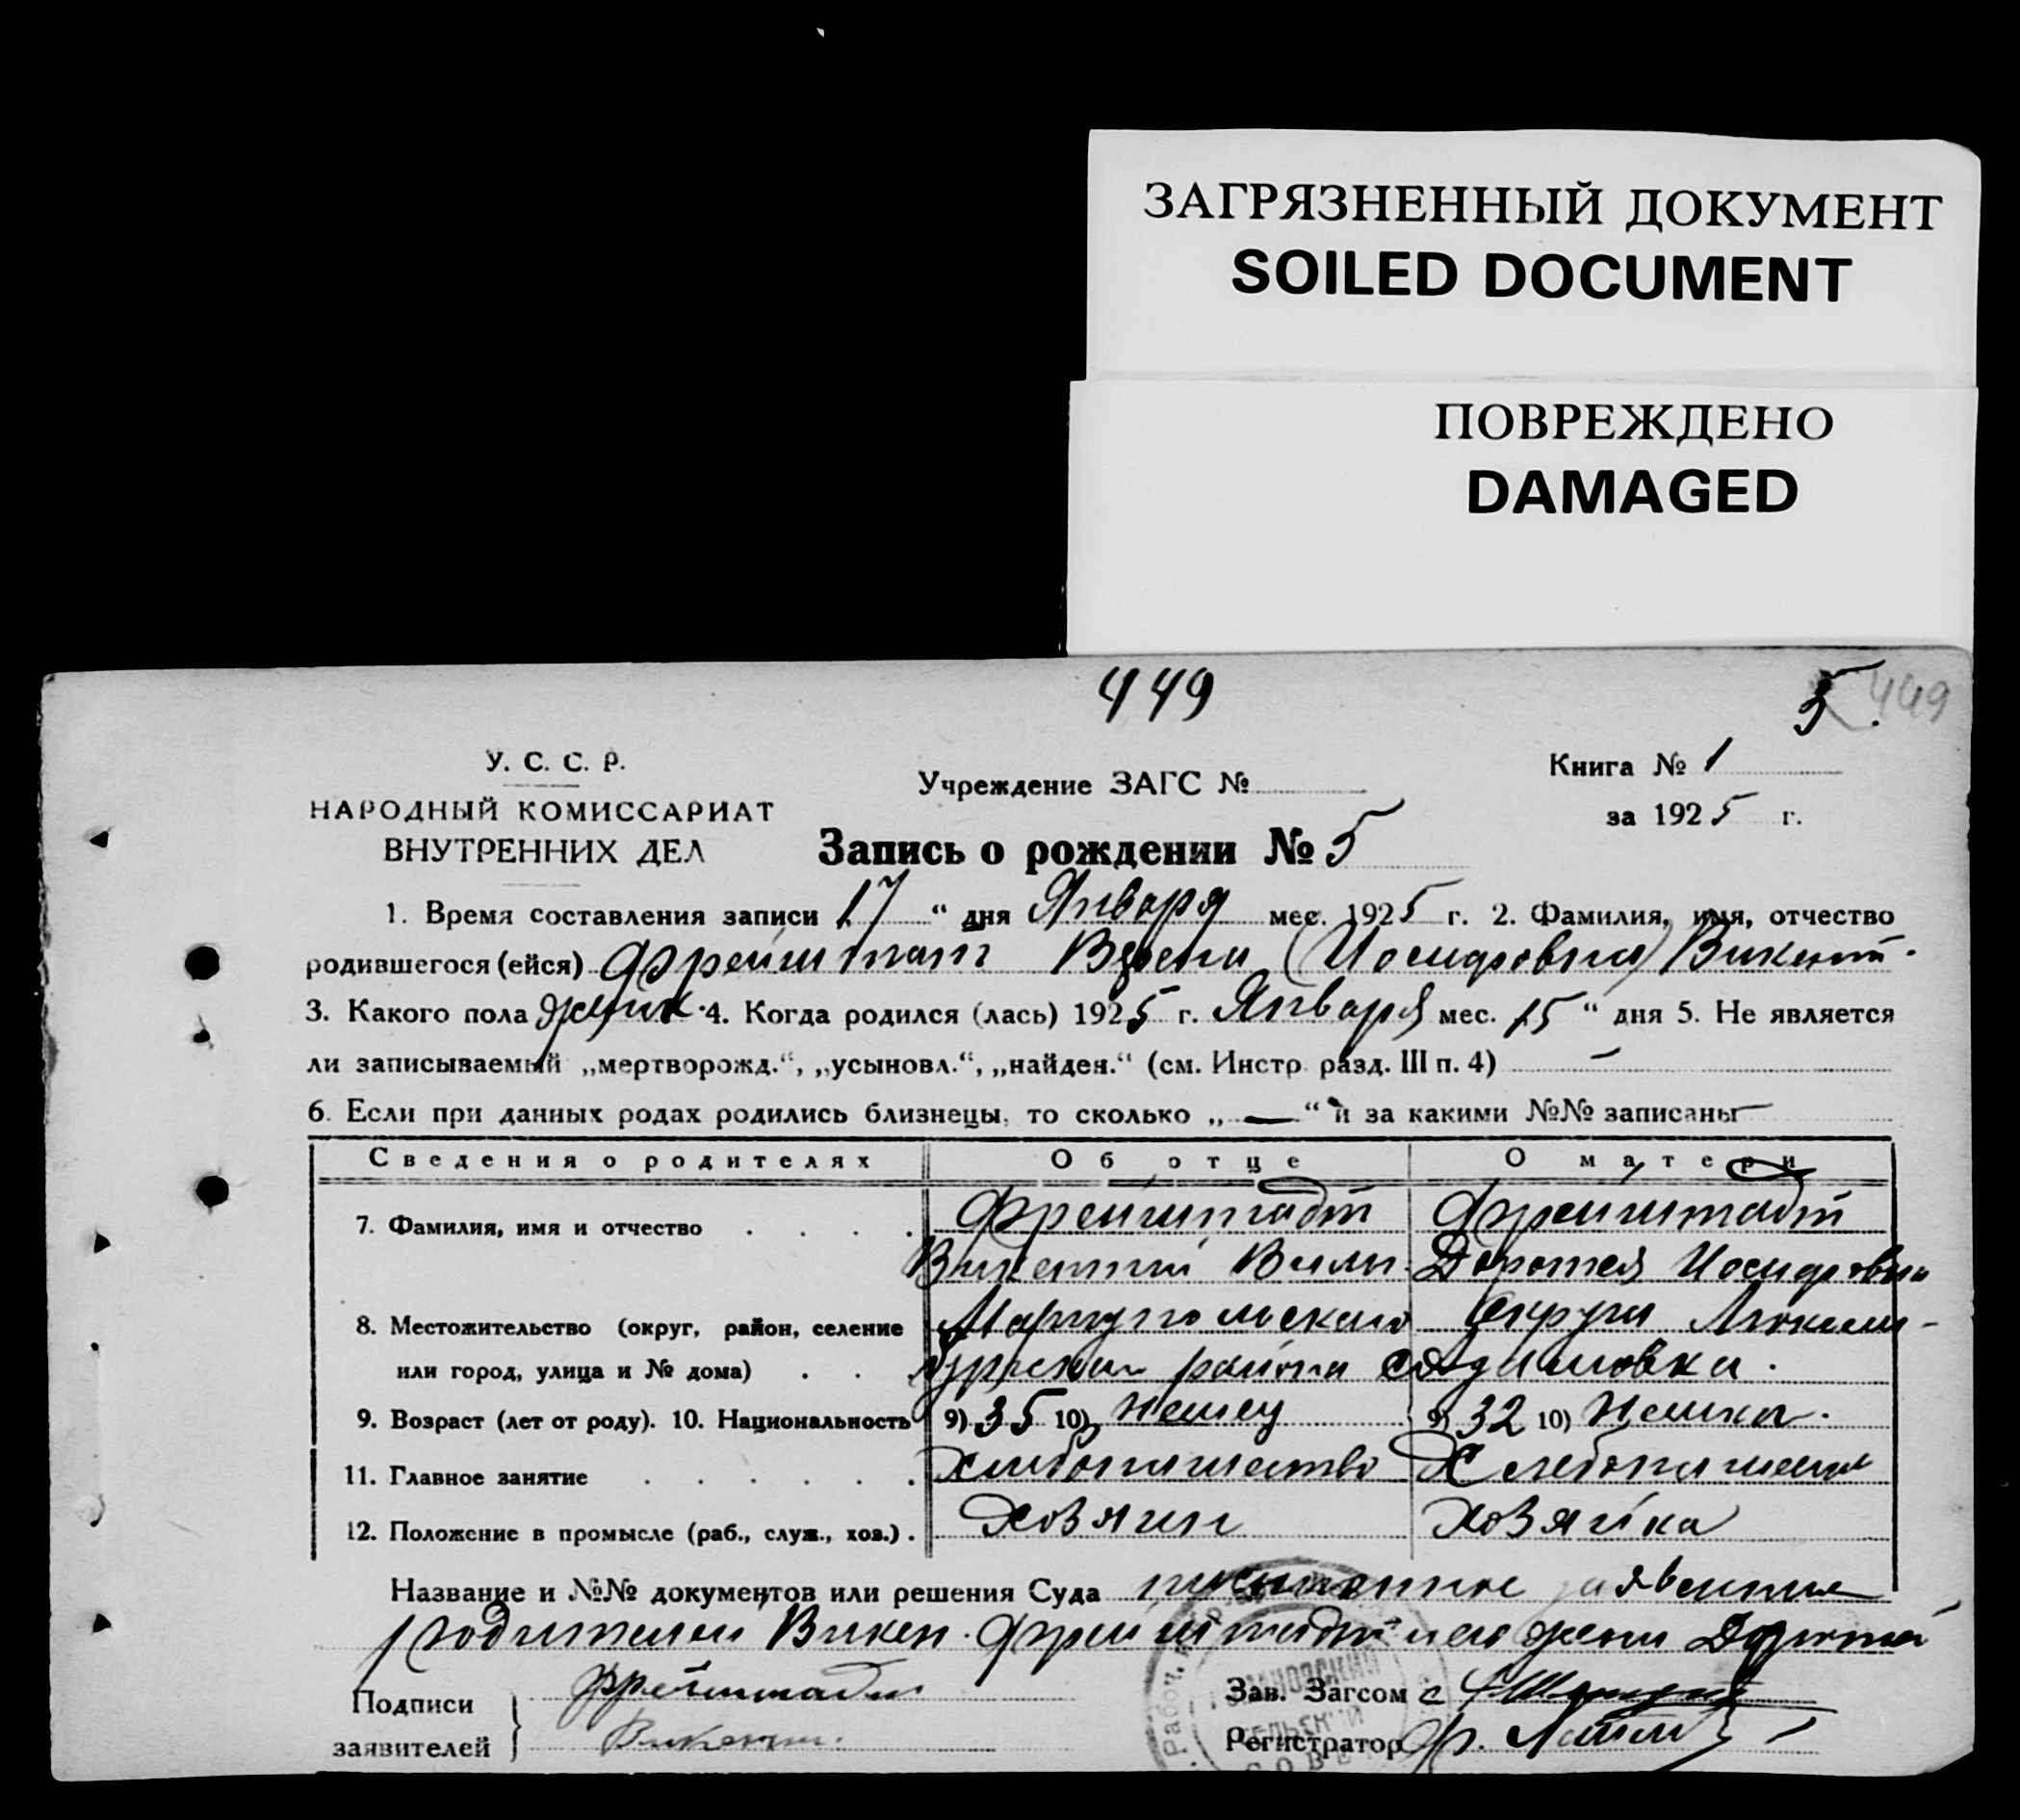 ЗАГРЯЗНЕННЫЙ ДОКУМЕНТ
SOILED DOCUMENT
ПОВРЕЖДЕНО
DAMAGED
449
5. 449
У. С. С. Р.
НАРОДНЫЙ КОМИССАРИАТ
ВНУТРЕННИХ ДЕЛ
Учреждение ЗАГС №
Книга № 1
за 1925 г.
Запись о рождении № 5
1. Время составления записи 17 “ дня Января мес. 1925 г. 2. Фамилия, имя, отчество
родившегося (ейся) Фрейштат (Иосифовна) Викент.
3. Какого пола 4. Когда родился (лась) 1925 г. Января мес. 15 “ дня 5. Не является
ли записываемый „мертворожд.“, „усыновл.“, „найден.“ (см. Инстр. разд. III п. 4) —
6. Если при данных родах родились близнецы, то сколько „ — “ и за какими №№ записаны —
Сведения о родителях Об отце О матери
7. Фамилия, имя и отчество . . . . Фрейштадт Фрейштадт
Викентий Вильг. Доротея Иосифовна
8. Местожительство (округ, район, селение Мариупольского округа Люксем-
или город, улица и № дома) . . . бургского района
9. Возраст (лет от роду). 10. Национальность 9) 35 10) Немец 9) 32 10) Немка.
11. Главное занятие . . . . . . Хлебопашество Хлебопашест
12. Положение в промысле (раб., служ., хоз.) . Хозяин Хозяйка
Название и №№ документов или решения Суда письменное заявление
родителей Викен. Фрейштадт и его жены
Подписи
заявителей
Фрейштадт
Викентий.
Зав. Загсом
Регистратор Фр.